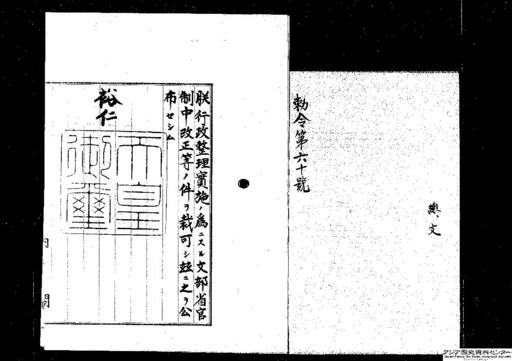 勅令第六十號
總文
朕行政整理實施ノ爲ニスル文部省官
制中改正等ノ件ヲ裁可シ茲ニ之ヲ公
布セシム
裕仁
天皇
御璽
内閣
アジア歴史資料センター